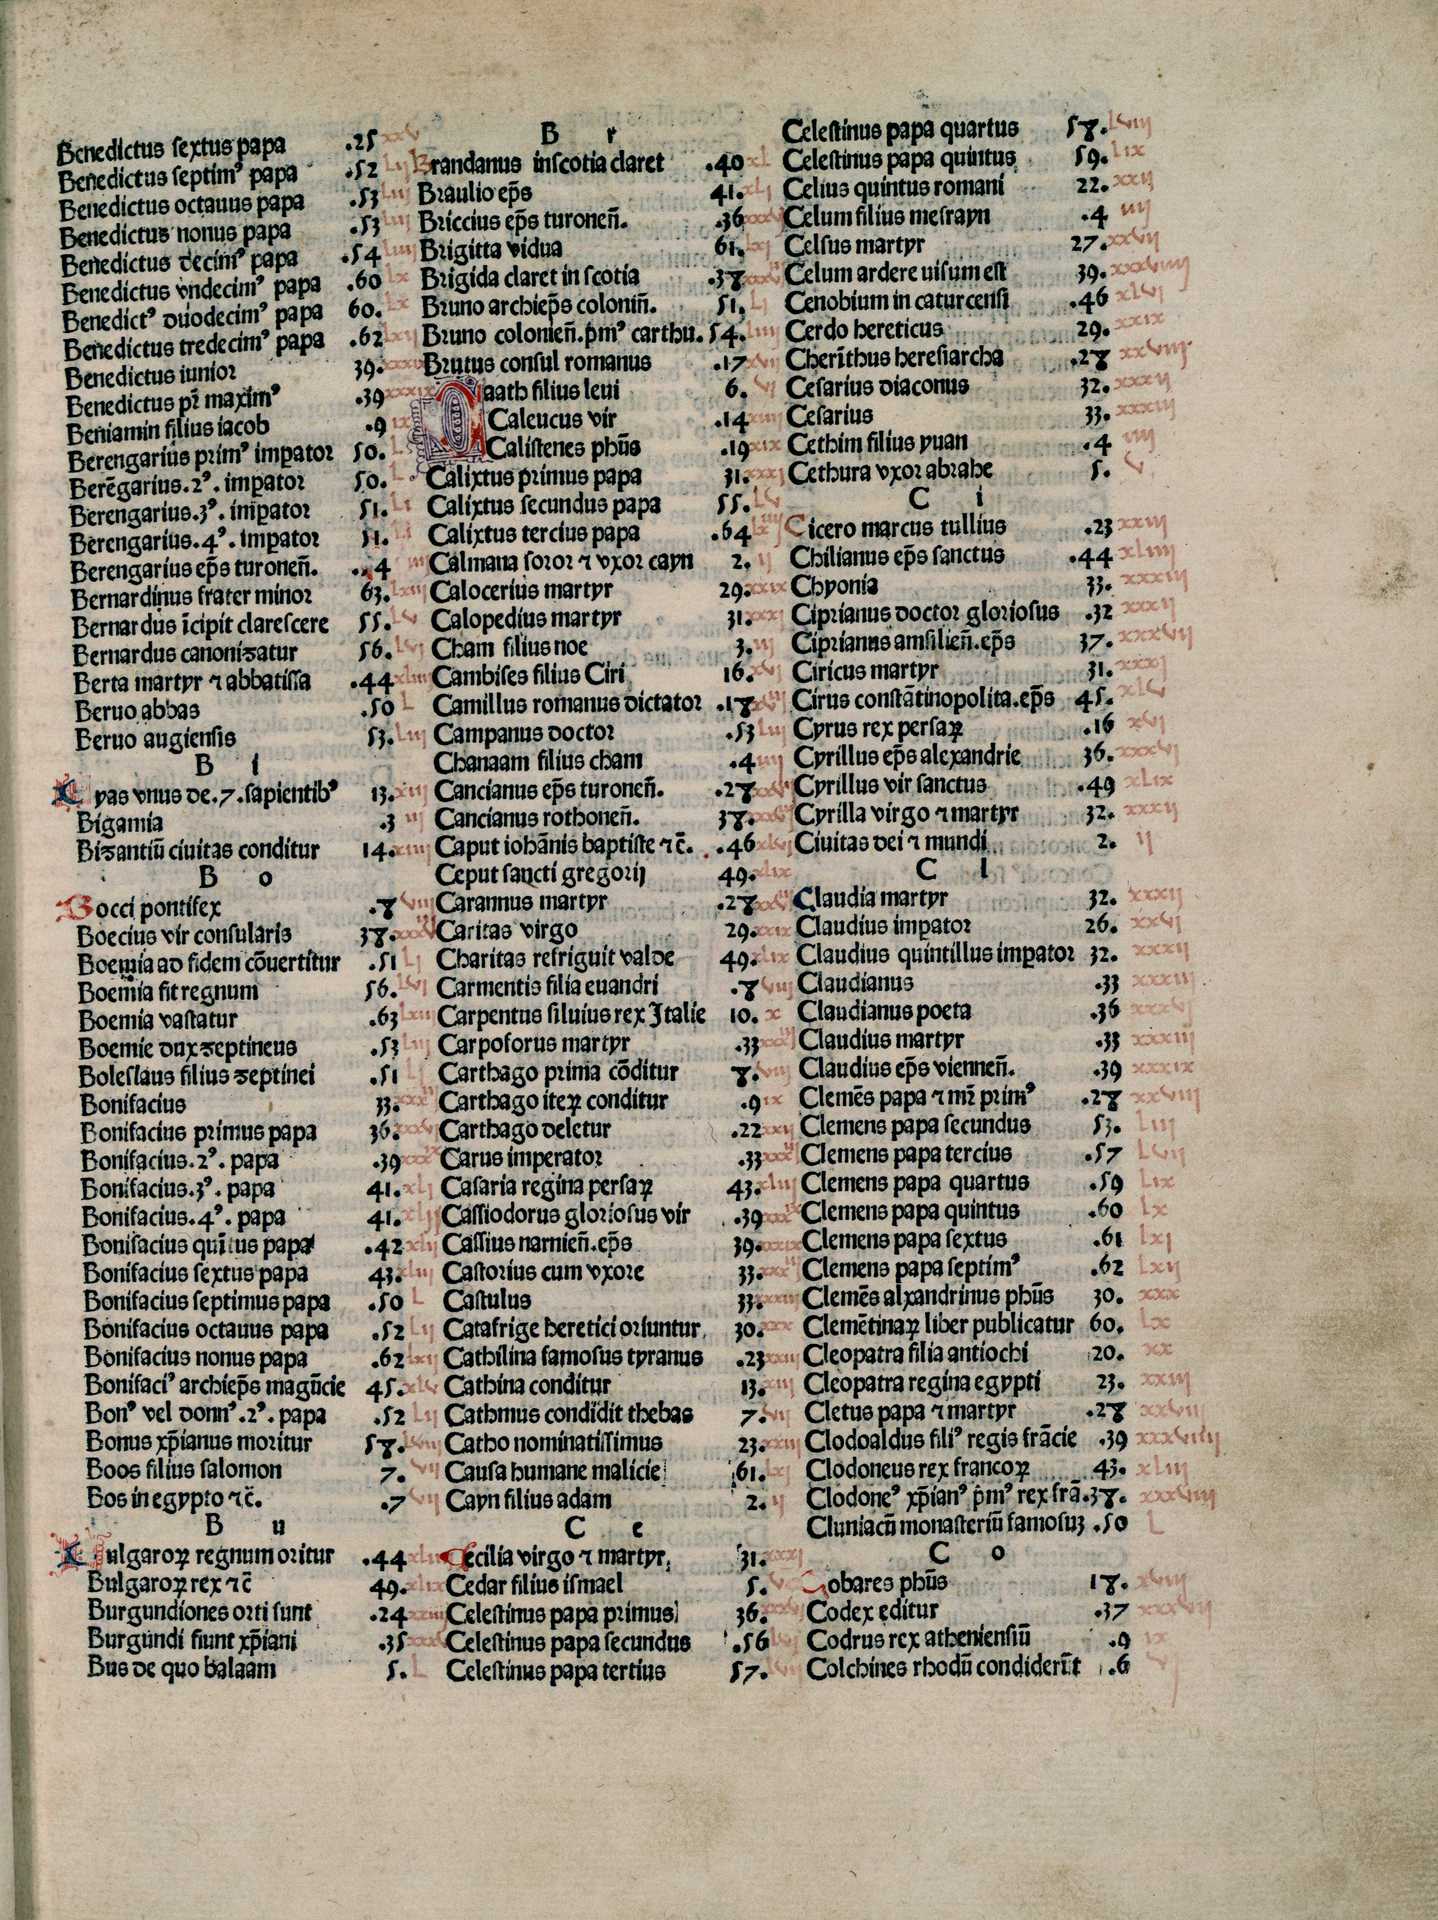 Benedictus sextus papa .25 xxv
Benedictus septimꝰ papa .52 lij
Benedictus octauus papa .53 liij
Benedictus nonus papa .53 liij
Benedictus decimꝰ papa .54 liiij
Benedictus vndecimꝰ papa .60 lx
Benedictꝰ duodecimꝰ papa 60. lx
Benedictus tredecimꝰ papa .62 lxij
Benedictus iunior 39.
Benedictus pr̄ maximꝰ .39 xxxix
Beniamin filius iacob .9 ix
Berengarius primꝰ imꝑator 50. l
Berēgarius.2ꝰ. imꝑator 50. l
Berengarius.3ꝰ. imꝑator 51. li
Berengarius.4ꝰ. imꝑator 51. li
Berengarius ep̄s turoneñ. .4
Bernardinus frater minor 63. lxiij
Bernardus īcipit clarescere 55. lv
Bernardus canonizatur 56. lvj
Berta martyr ⁊ abbatissa .44 xliiij
Beruo abbas .50 l
Beruo augiensis 53. liij
B i
yas vnus de.7.sapientibꝰ 13. xiij
Bigamia .3 iij
Bizantiū ciuitas conditur 14. xiiij
B o
Bocci pontifex .8 viij
Boecius vir consularis 38.
Boemia ad fidem cōuertitur .51 lj
Boemia fit regnum 56. lvj
Boemia vastatur .63 lxiij
Boemie dux zeptineus .53 liij
Boleslaus filius zeptinei .51 lj
Bonifacius 33.
Bonifacius primus papa 36. xxxvj
Bonifacius.2ꝰ. papa .39
Bonifacius.3ꝰ. papa 41. xlj
Bonifacius.4ꝰ. papa 41. xlj
Bonifacius quītus papa .42 xlij
Bonifacius sextus papa 43. xliij
Bonifacius septimus papa .50 l
Bonifacius octauus papa .52 lij
Bonifacius nonus papa .62 lxij
Bonifaciꝰ archiep̄s magūcie 45. xlv
Bonꝰ vel donnꝰ.2ꝰ. papa .52 lij
Bonus xp̄ianus moritur 58. lviij
Boos filius salomon 7. vij
Bos in egypto ⁊c̄. .7 vij
B u
Bulgaroꝝ regnum oritur .44 xliiij
Bulgaroꝝ rex ⁊c̄ 49. xlix
Burgundiones orti sunt .24 xxiiij
Burgundi fiunt xp̄iani .35 xxxv
Bus de quo balaam 5. v
B r
Brandanus inscotia claret .40 xl
Braulio ep̄s 41. xlj
Briccius ep̄s turoneñ. .36 xxxvj
Brigitta vidua 61. lxj
Brigida claret in scotia .38
Bruno archiep̄s coloniñ. 51. lj
Bruno colonieñ.p̄mꝰ carthu. 54. liiij
Brutus consul romanus .17 xvij
Caath filius leui 6. vj
Caleucus vir .14 xiiij
Calistenes ph̄us .19 xix
Calixtus primus papa 31. xxxj
Calixtus secundus papa 55. lv
Calixtus tercius papa .64
Calmana soror ⁊ vxor cayn 2. ij
Calocerius martyr 29. xxix
Calopedius martyr 31. xxxj
Cham filius noe 3. iij
Cambises filius Ciri 16. xvj
Camillus romanus dictator .18
Campanus doctor .53 liij
Chanaam filius cham .4 iiij
Cancianus ep̄s turoneñ. .28
Cancianus rothoneñ. 38.
Caput iohānis baptiste ⁊c̄. .46 xlvj
Ceput sancti gregorij 49. xlix
Carannus martyr .28
Caritas virgo 29. xxix
Charitas refriguit valde 49. xlix
Carmentis filia euandri .8 viij
Carpentus siluius rex Italie 10. x
Carpoforus martyr .33
Carthago prima cōditur 8. viij
Carthago iteꝝ conditur .9 ix
Carthago deletur .22 xxij
Carus imperator .33
Casaria regina persaꝝ 43. xliij
Cassiodorus gloriosus vir .39
Cassius narnieñ.ep̄s 39. xxxix
Castorius cum vxore 33.
Castulus 33. xxxiij
Catafrige heretici oriuntur 30. xxx
Cathilina famosus tyranus .23 xxiij
Cathina conditur 13. xiij
Cathmus condidit thebas 7. vij
Catho nominatissimus 23. xxiij
Causa humane malicie 61. lxj
Cayn filius adam 2. ij
C e
Cecilia virgo ⁊ martyr 31. xxxj
Cedar filius ismael 5. v
Celestinus papa primus 36. xxxvj
Celestinus papa secundus .56 lvj
Celestinus papa tertius 57. lvij
Celestinus papa quartus 58. lviij
Celestinus papa quintus 59. lix
Celius quintus romani 22. xxij
Celum filius mesrayn .4 iiij
Celsus martyr 27. xxvij
Celum ardere uisum est 39. xxxviiij
Cenobium in caturcensi .46 xlvj
Cerdo hereticus 29. xxix
Cherīthus heresiarcha .28 xxviij
Cesarius diaconus 32. xxxij
Cesarius 33. xxxiij
Cethim filius yuan .4 iiij
Cethura vxor abrahe 5. v
C i
Cicero marcus tullius .23 xxiij
Chilianus ep̄s sanctus .44 xliiij
Chyonia 33. xxxiij
Ciprianus doctor gloriosus .32 xxxij
Ciprianus amsilieñ.ep̄s 37. xxxvij
Ciricus martyr 31. xxxj
Cirus constātinopolita.ep̄s 45. xlv
Cyrus rex persaꝝ .16 xvj
Cyrillus ep̄s alexandrie 36. xxxvj
Cyrillus vir sanctus .49 xlix
Cyrilla virgo ⁊ martyr 32. xxxij
Ciuitas dei ⁊ mundi 2. ij
C l
Claudia martyr 32. xxxij
Claudius imꝑator 26. xxvj
Claudius quintillus imꝑator 32. xxxij
Claudianus .33 xxxiij
Claudianus poeta .36 xxxvj
Claudius martyr .33 xxxiij
Claudius ep̄s vienneñ. .39 xxxix
Clemēs papa ⁊ mr̄ primꝰ .28 xxviij
Clemens papa secundus 53. liij
Clemens papa tercius .57 lvij
Clemens papa quartus .59 lix
Clemens papa quintus .60 lx
Clemens papa sextus .61 lxj
Clemens papa septimꝰ .62 lxij
Clemēs alxandrinus ph̄us 30. xxx
Clemētinaꝝ liber publicatur 60. lx
Cleopatra filia antiochi 20. xx
Cleopatra regina egypti 23. xxiij
Cletus papa ⁊ martyr .28 xxviij
Clodoaldus filiꝰ regis frācie .39 xxxviiij
Clodoneus rex francoꝝ 43. xliij
Clodoneꝰ xp̄ianꝰ p̄mꝰ rex frā.38. xxxviij
Cluniacū monasteriū famosuꝫ .50 l
C o
Cobares ph̄us 18. xviij
Codex editur .37 xxxvij
Codrus rex atheniensiū .9 ix
Colchines rhodū condiderūt .6 vj